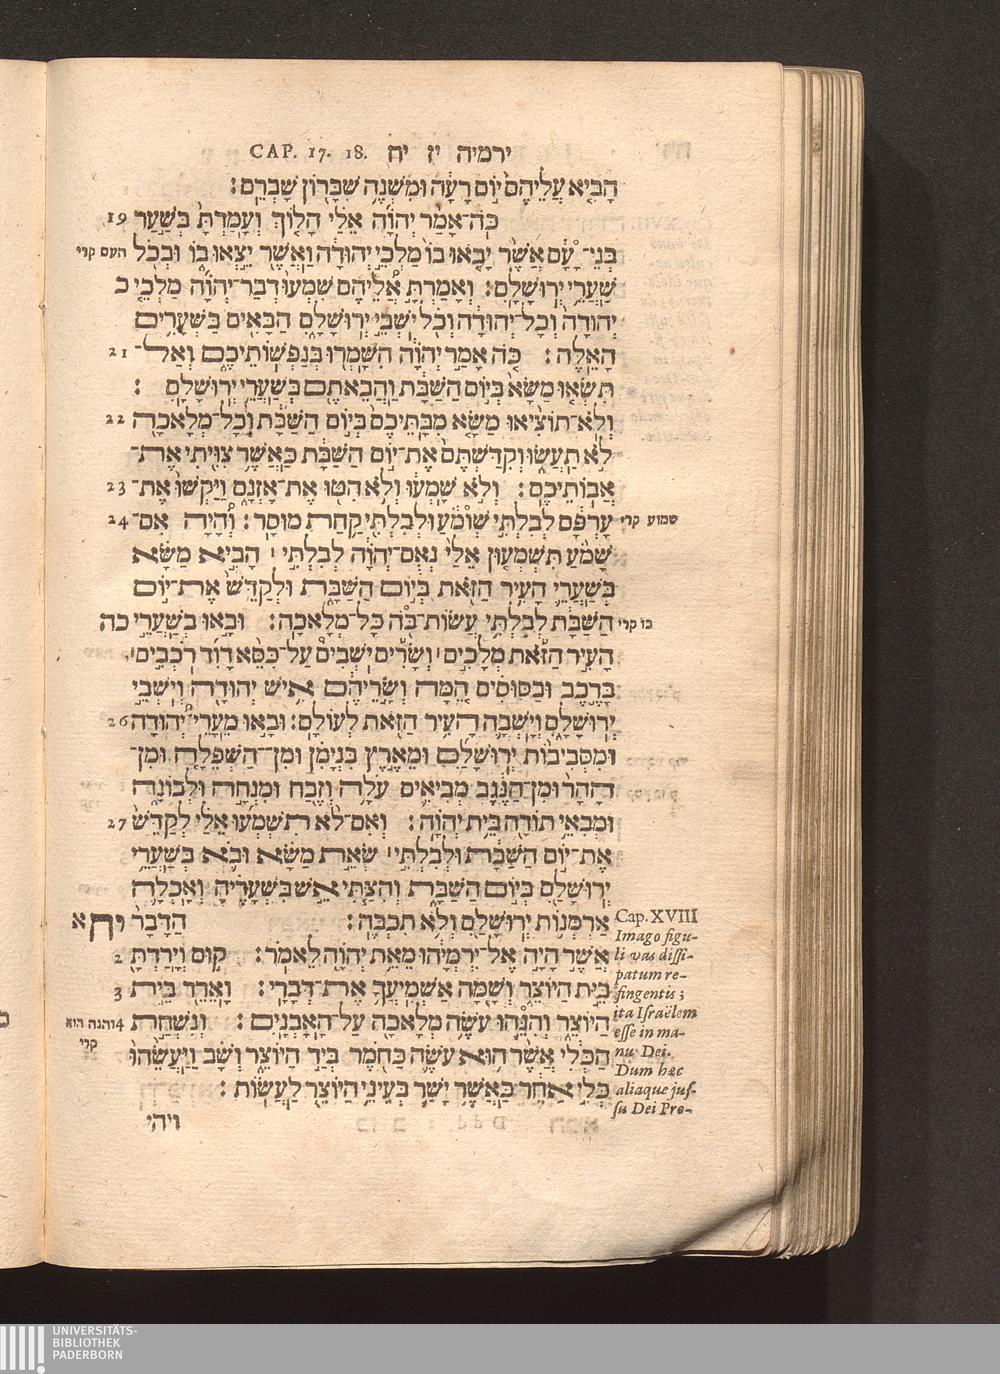 CAP. 17. 18. ירמיה יז יח
הָבִיא עֲלֵיהֶם יוֹם רָעָה וּמִשְׁנֶה שִׁבָּרוֹן שָׁבְרֵם:
כֹּה־אָמַר יְהוָֹה אֵלַי הָלוֹךְ וְעָמַדְתָּ בְּשַׁעַר 19
בְּנֵי־עָם אֲשֶׁר יָבֹאוּ בוֹ מַלְכֵי יְהוּדָה וַאֲשֶׁר יֵצְאוּ בוֹ וּבְכֹל העם קרי
שַׁעֲרֵי יְרוּשָׁלִָם: וְאָמַרְתָּ אֲלֵיהֶם שִׁמְעוּ דְבַר־יְהוָֹה מַלְכֵי כ
יְהוּדָה וְכָל־יְהוּדָה וְכֹל יֹשְׁבֵי יְרוּשָׁלִָם הַבָּאִים בַּשְּׁעָרִים
הָאֵלֶּה: כֹּה אָמַר יְהוָֹה הִשָּׁמְרוּ בְּנַפְשׁוֹתֵיכֶם וְאַל־ 21
תִּשְׂאוּ מַשָּׂא בְּיוֹם הַשַּׁבָּת וַהֲבֵאתֶם בְּשַׁעֲרֵי יְרוּשָׁלִָם:
וְלֹא־תוֹצִיאוּ מַשָּׂא מִבָּתֵּיכֶם בְּיוֹם הַשַּׁבָּת וְכָל־מְלָאכָה 22
לֹא תַעֲשׂוּ וְקִדַּשְׁתֶּם אֶת־יוֹם הַשַּׁבָּת כַּאֲשֶׁר צִוִּיתִי אֶת־
אֲבוֹתֵיכֶם: וְלֹא שָׁמְעוּ וְלֹא הִטּוּ אֶת־אָזְנָם וַיַּקְשׁוּ אֶת־ 23
שמוע קרי עָרְפָּם לְבִלְתִּי שׁוֹמֵעַ וּלְבִלְתִּי קַחַת מוּסָר: וְהָיָה אִם־ 24
שָׁמֹעַ תִּשְׁמְעוּן אֵלַי נְאֻם־יְהוָֹה לְבִלְתִּי הָבִיא מַשָּׂא
בְּשַׁעֲרֵי הָעִיר הַזֹּאת בְּיוֹם הַשַּׁבָּת וּלְקַדֵּשׁ אֶת־יוֹם
בו קרי הַשַּׁבָּת לְבִלְתִּי עֲשׂוֹת־בָּה כָּל־מְלָאכָה: וּבָאוּ בְשַׁעֲרֵי כה
הָעִיר הַזֹּאת מְלָכִים וְשָׂרִים יֹשְׁבִים עַל־כִּסֵּא דָוִד רֹכְבִים
בָּרֶכֶב וּבַסּוּסִים הֵמָּה וְשָׂרֵיהֶם אִישׁ יְהוּדָה וְיֹשְׁבֵי
יְרוּשָׁלִָם וְיָשְׁבָה הָעִיר הַזֹּאת לְעוֹלָם: וּבָאוּ מֵעָרֵי־יְהוּדָה 26
וּמִסְּבִיבוֹת יְרוּשָׁלִַם וּמֵאֶרֶץ בִּנְיָמִן וּמִן־הַשְּׁפֵלָה וּמִן־
הָהָר וּמִן־הַנֶּגֶב מְבִיאִים עֹלָה וְזֶבַח וּמִנְחָה וּלְבוֹנָה
וּמְבִאֵי תוֹדָה בֵּית יְהוָֹה: וְאִם־לֹא תִשְׁמְעוּ אֵלַי לְקַדֵּשׁ 27
אֶת־יוֹם הַשַּׁבָּת וּלְבִלְתִּי שְׂאֵת מַשָּׂא וּבֹא בְּשַׁעֲרֵי
יְרוּשָׁלִַם בְּיוֹם הַשַּׁבָּת וְהִצַּתִּי אֵשׁ בִּשְׁעָרֶיהָ וְאָכְלָה
אַרְמְנוֹת יְרוּשָׁלִַם וְלֹא תִכְבֶּה: הַדָּבָר יח א
אֲשֶׁר הָיָה אֶל־יִרְמְיָהוּ מֵאֵת יְהוָֹה לֵאמֹר: קוּם וְיָרַדְתָּ 2
בֵּית הַיּוֹצֵר וְשָׁמָּה אַשְׁמִיעֲךָ אֶת־דְּבָרָי: וָאֵרֵד בֵּית 3
הַיּוֹצֵר וְהִנֵּהוּ עֹשֶׂה מְלָאכָה עַל־הָאָבְנָיִם: וְנִשְׁחַת 4 והנה הוא
קרי
הַכְּלִי אֲשֶׁר הוּא עֹשֶׂה כַּחֹמֶר בְּיַד הַיּוֹצֵר וְשָׁב וַיַּעֲשֵׂהוּ
כְּלִי אַחֵר כַּאֲשֶׁר יָשַׁר בְּעֵינֵי הַיּוֹצֵר לַעֲשׂוֹת:
ויהי
Cap. XVIII
Imago figu-
li vas dissi-
patum re-
fingentis;
ita Israëlem
esse in ma-
nu Dei.
Dum hæc
aliaque jus-
su Dei Pro-
UNIVERSITÄTS-
BIBLIOTHEK
PADERBORN